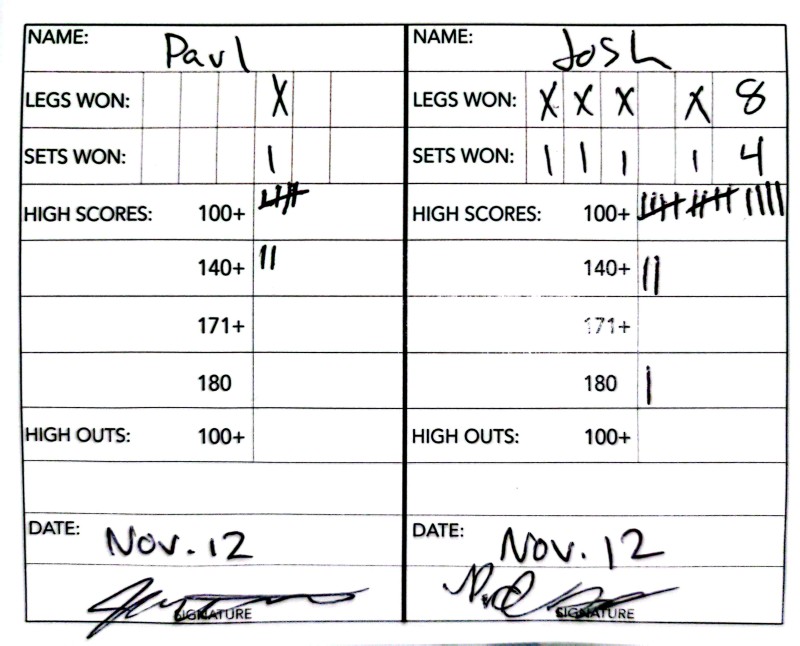 NAME: Paul
LEGS WON: X
SETS WON: 1
HIGH SCORES: 100+ 卌
140+ ||
171+
180
HIGH OUTS: 100+
DATE: Nov. 12
SIGNATURE
NAME: Josh
LEGS WON: X X X X 8
SETS WON: 1 1 1 1 4
HIGH SCORES: 100+ 卌 卌 ||||
140+ ||
171+
180 |
HIGH OUTS: 100+
DATE: Nov. 12
SIGNATURE